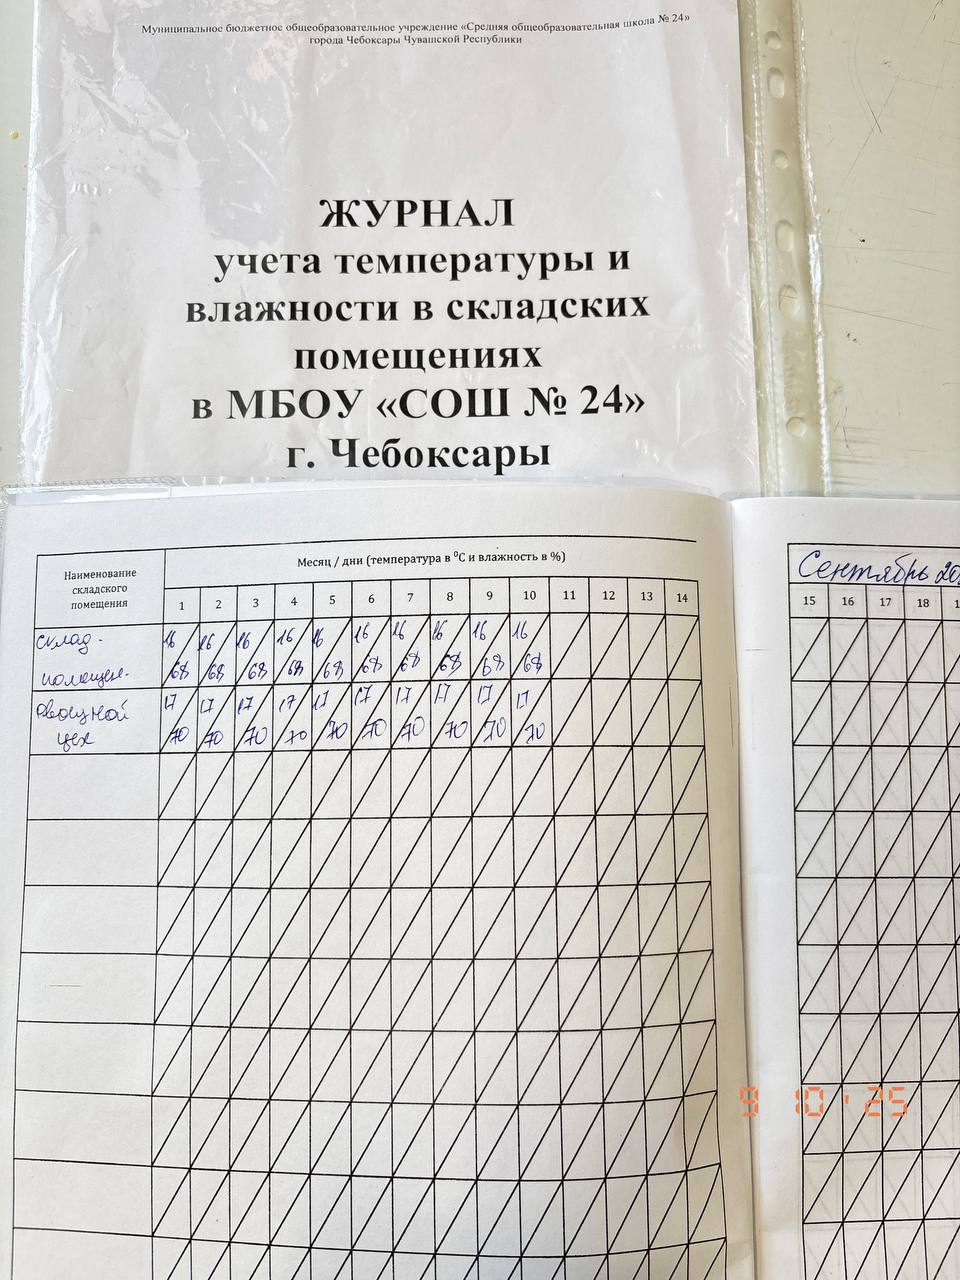 Муниципальное бюджетное общеобразовательное учреждение «Средняя общеобразовательная школа № 24»
города Чебоксары Чувашской Республики
ЖУРНАЛ
учета температуры и
влажности в складских
помещениях
в МБОУ «СОШ № 24»
г. Чебоксары
Наименование
складского
помещения
Месяц / дни (температура в ⁰С и влажность в %)
1 2 3 4 5 6 7 8 9 10 11 12 13 14
склад-
16 16 16 16 16 16 16 16 16 16
помещен-
68 68 68 68 68 68 68 68 68 68
овощной
17 17 17 17 17 17 17 17 17 17
цех
70 70 70 70 70 70 70 70 70 70
Сентябрь
15 16 17 18
9 10 ' 25